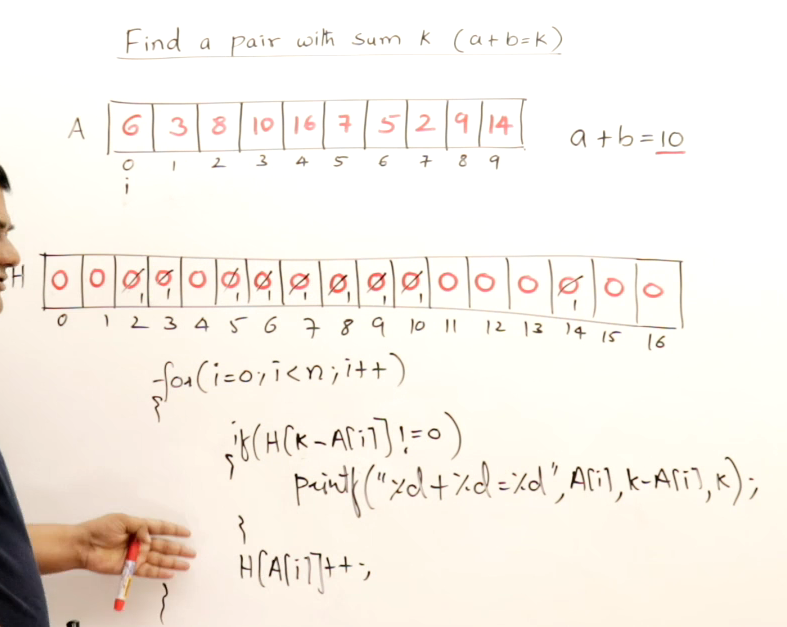 Find a pair with sum K (a+b=K)
A 6 3 8 10 16 7 5 2 9 14
0 1 2 3 4 5 6 7 8 9
a+b=10
i
H 0 0 0 0 0 0 0 0 0 0 0 0 0 0 0 0 0
1 1 1 1 1 1 1 1 1
0 1 2 3 4 5 6 7 8 9 10 11 12 13 14 15 16
for(i=0;i<n;i++)
{
if(H[K-A[i]]!=0)
{
printf("%d+%d=%d",A[i],K-A[i],K);
}
H[A[i]]++;
}